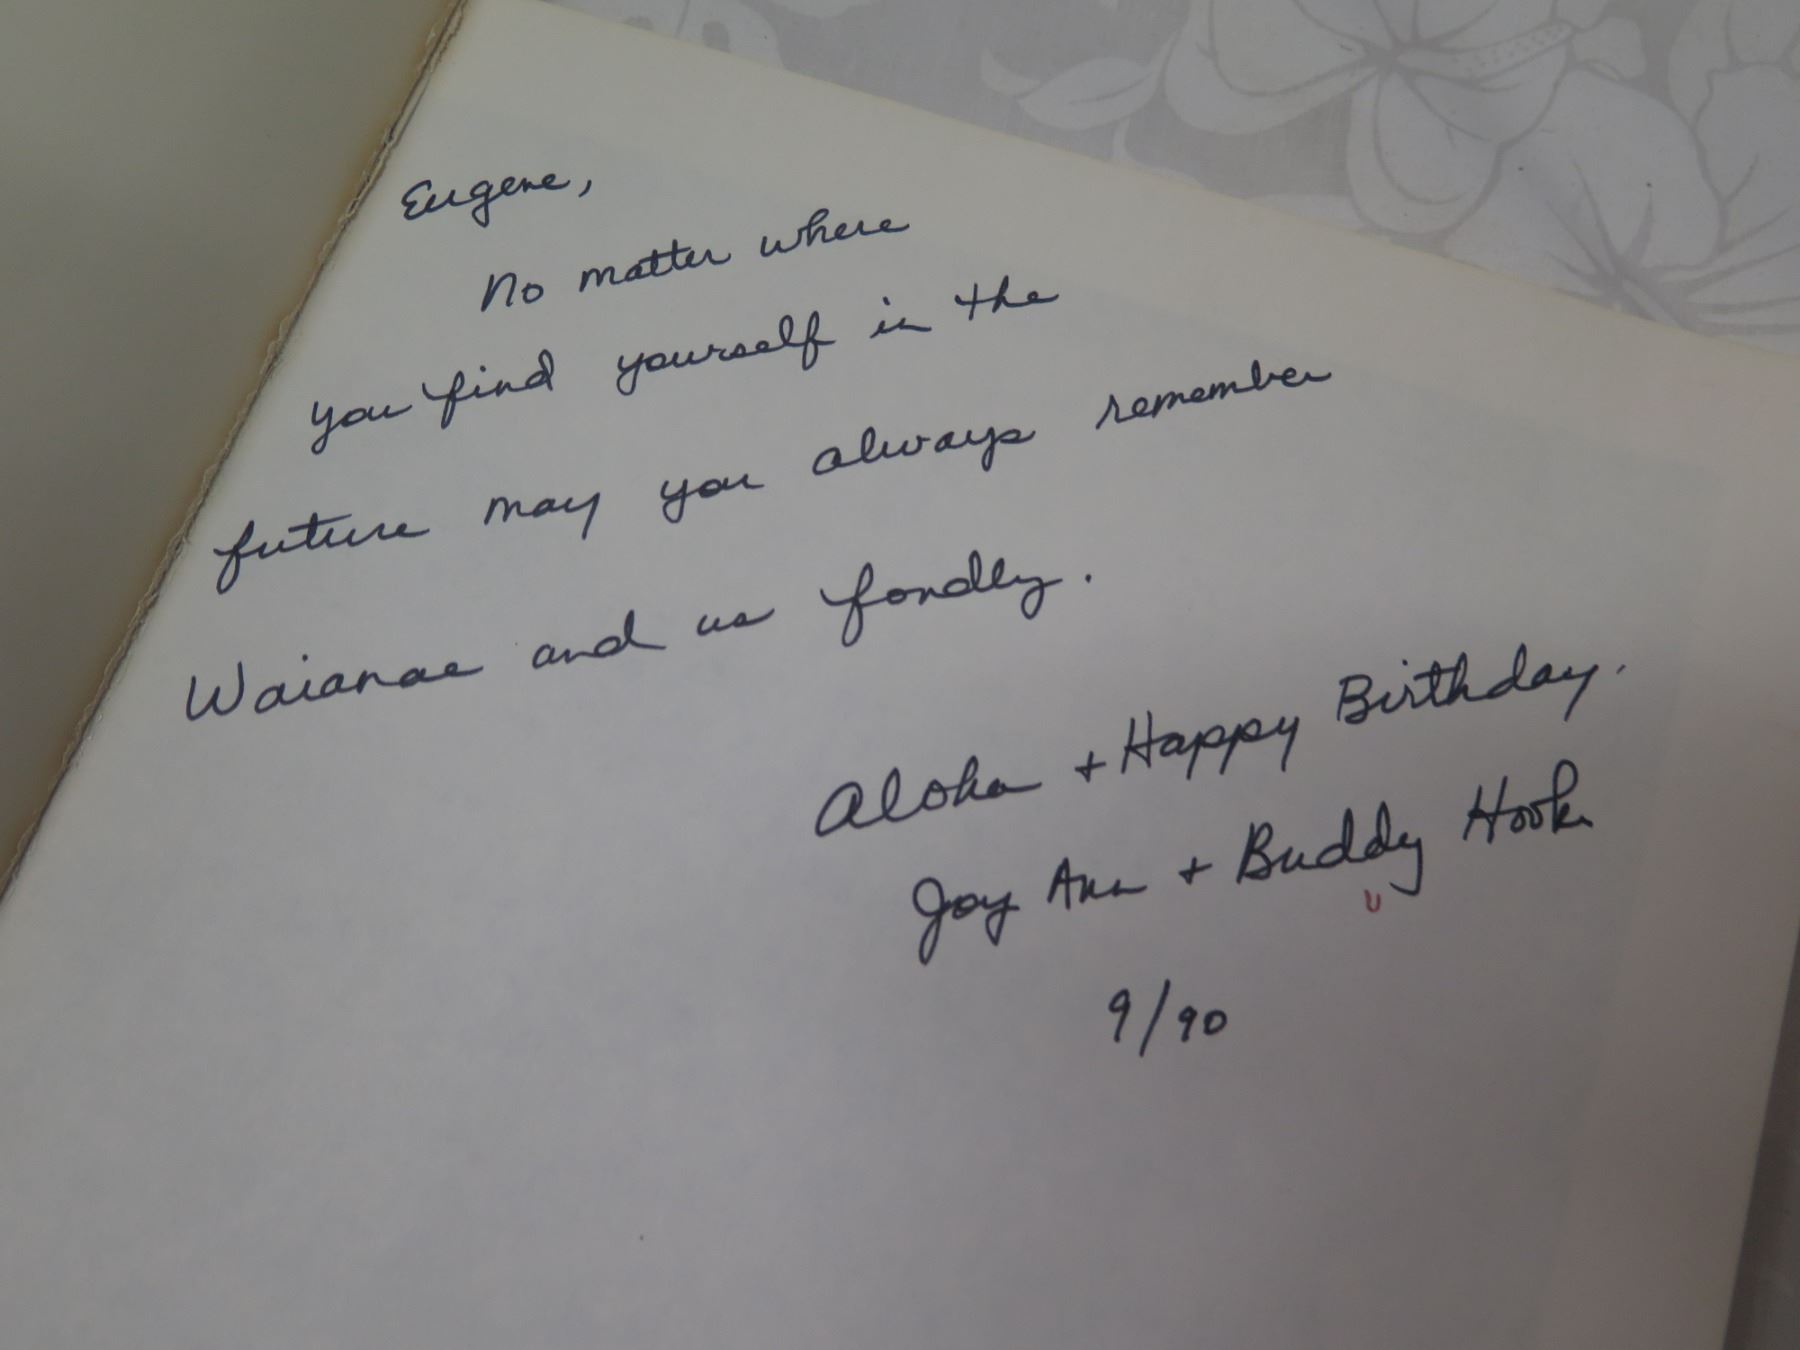 Eugene,
No matter where
you find yourself in the
future may you always remember
Waianae and us fondly.
Aloha + Happy Birthday.
Joy Ann + Buddy Hook
U
9/90